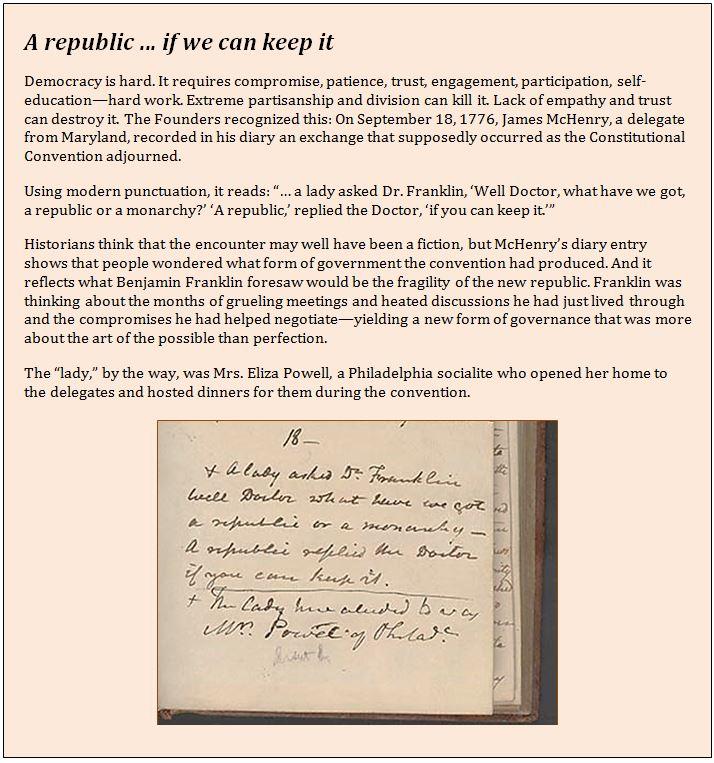 A republic ... if we can keep it
Democracy is hard. It requires compromise, patience, trust, engagement, participation, self-
education—hard work. Extreme partisanship and division can kill it. Lack of empathy and trust
can destroy it. The Founders recognized this: On September 18, 1776, James McHenry, a delegate
from Maryland, recorded in his diary an exchange that supposedly occurred as the Constitutional
Convention adjourned.
Using modern punctuation, it reads: “... a lady asked Dr. Franklin, ‘Well Doctor, what have we got,
a republic or a monarchy?’ ‘A republic,’ replied the Doctor, ‘if you can keep it.’”
Historians think that the encounter may well have been a fiction, but McHenry’s diary entry
shows that people wondered what form of government the convention had produced. And it
reflects what Benjamin Franklin foresaw would be the fragility of the new republic. Franklin was
thinking about the months of grueling meetings and heated discussions he had just lived through
and the compromises he had helped negotiate—yielding a new form of governance that was more
about the art of the possible than perfection.
The “lady,” by the way, was Mrs. Eliza Powell, a Philadelphia socialite who opened her home to
the delegates and hosted dinners for them during the convention.
18—
+ A lady asked Dr. Franklin
well Doctor what have we got
a republic or a monarchy—
A republic replied the Doctor
if you can keep it.
+ The Lady here alluded to was
Mrs. Powel of Philada.